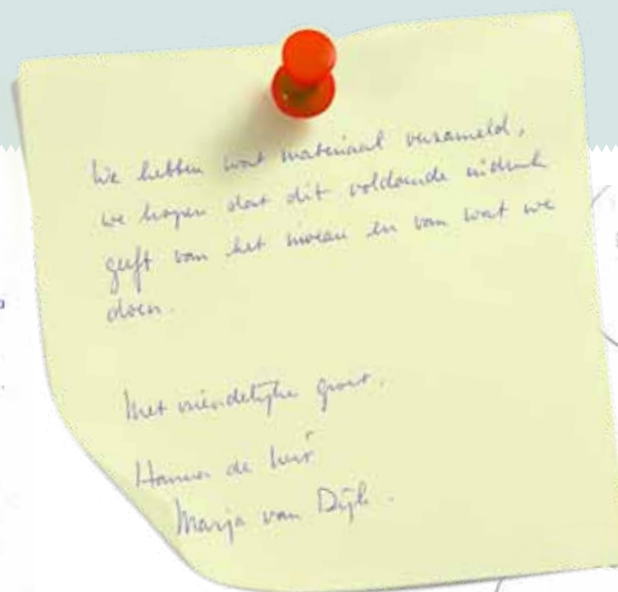 We hebben wat materiaal verzameld,
we hopen dat dit voldoende indruk
geeft van het niveau en van wat we
doen.
Met vriendelijke groet,
de
Marja van Dijk.